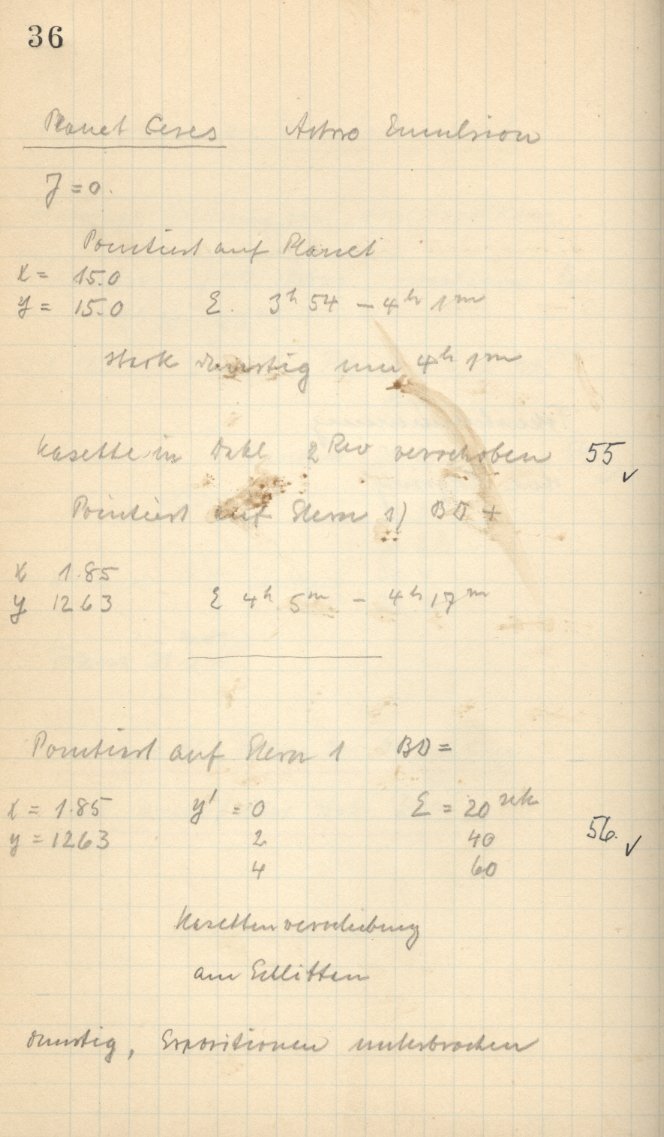 36
Planet Ceres Astro Emulsion
J = 0.
Pointiert auf Planet
x = 15.0
y = 15.0 E. 3h 54 – 4h 1m
stark dunstig um 4h 1m
Kasette in Dekl 2 Rev verschoben 55 ✓
Pointiert auf Stern 1) BD +
x 1.85
y 1263 E 4h 5m – 4h 17m
Pointiert auf Stern 1 BD =
x = 1.85 y' = 0 E = 20 sek
y = 1263 2 40 56. ✓
4 60
Kasettenverschiebung
am
dunstig, Expositionen unterbrochen